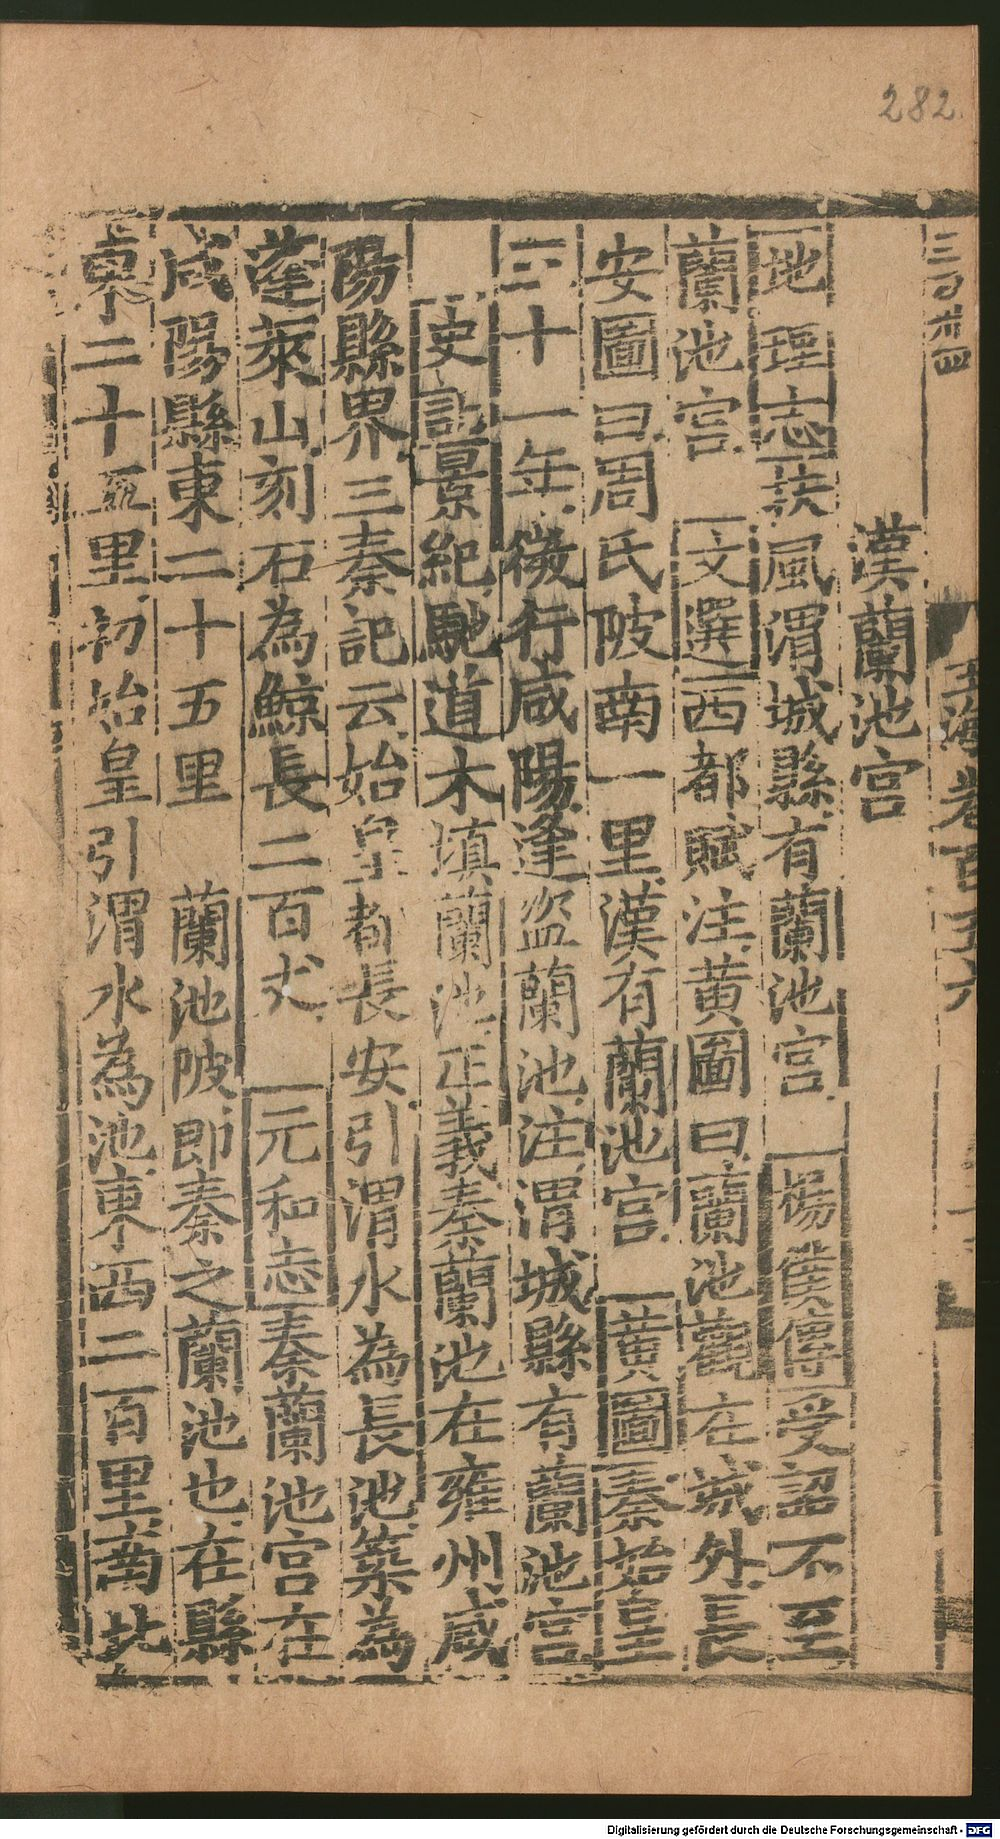 282.
三百六十四
玉海卷百五六
漢蘭池宮
地理志扶風渭城縣有蘭池宮 楊僕傳受詔不至
蘭池宮 文選西都賦注黃圖曰蘭池觀在城外長
安圖曰周氏陂南一里漢有蘭池宮 黃圖秦始皇
三十一年微行咸陽逢盗蘭池注渭城縣有蘭池宮
史記景紀馳道木填蘭池正義秦蘭池在雍州咸
陽縣界三秦記云始皇都長安引渭水為長池築為
蓬萊山刻石為鯨長二百丈 元和志秦蘭池宮在
咸陽縣東二十五里 蘭池陂即秦之蘭池也在縣
東二十五里初始皇引渭水為池東西二百里南北
Digitalisierung gefördert durch die Deutsche Forschungsgemeinschaft - DFG